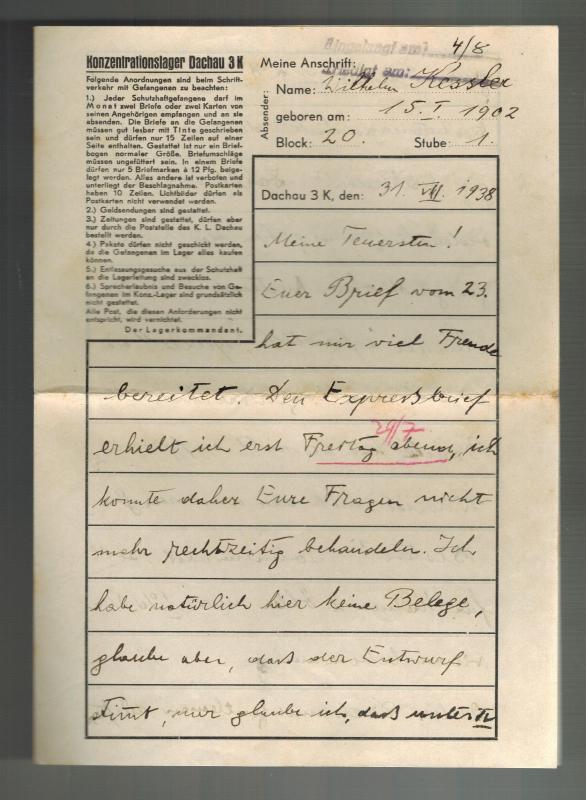 Konzentrationslager Dachau 3 K
Folgende Anordnungen sind beim Schrift-
verkehr mit Gefangenen zu beachten:
1.) Jeder Schutzhaftgefangene darf im
Monat zwei Briefe oder zwei Karten von
seinen Angehörigen empfangen und an sie
absenden. Die Briefe an die Gefangenen
müssen gut lesbar mit Tinte geschrieben
sein und dürfen nur 15 Zeilen auf einer
Seite enthalten. Gestattet ist nur ein Brief-
bogen normaler Größe. Briefumschläge
müssen ungefüttert sein. In einem Briefe
dürfen nur 5 Briefmarken à 12 Pfg. beige-
legt werden. Alles andere ist verboten und
unterliegt der Beschlagnahme. Postkarten
haben 10 Zeilen. Lichtbilder dürfen als
Postkarten nicht verwendet werden.
2.) Geldsendungen sind gestattet.
3.) Zeitungen sind gestattet, dürfen aber
nur durch die Poststelle des K. L. Dachau
bestellt werden.
4.) Pakete dürfen nicht geschickt werden,
da die Gefangenen im Lager alles kaufen
können.
5.) Entlassungsgesuche aus der Schutzhaft
an die Lagerleitung sind zwecklos.
6.) Sprecherlaubnis und Besuche von Ge-
fangenen im Konz.-Lager sind grundsätzlich
nicht gestattet.
Alle Post, die diesen Anforderungen nicht
entspricht, wird vernichtet.
Der Lagerkommandant.
Eingelangt am: 4/8
Erledigt am:
Meine Anschrift:
Absender:
Name: Wilhelm Kessler
geboren am: 15. I. 1902
Block: 20. Stube: 1.
Dachau 3 K, den: 31. VII. 1938
Meine Teuersten!
Euer Brief vom 23.
hat mir viel Freude
bereitet. Den Expressbrief
29/7
erhielt ich erst Freitag abend, ich
konnte daher Eure Fragen nicht
mehr rechtzeitig behandeln. Ich
habe natürlich hier keine Belege,
glaube aber, dass der Entwurf
stimmt, nur glaube ich, dass unter IV